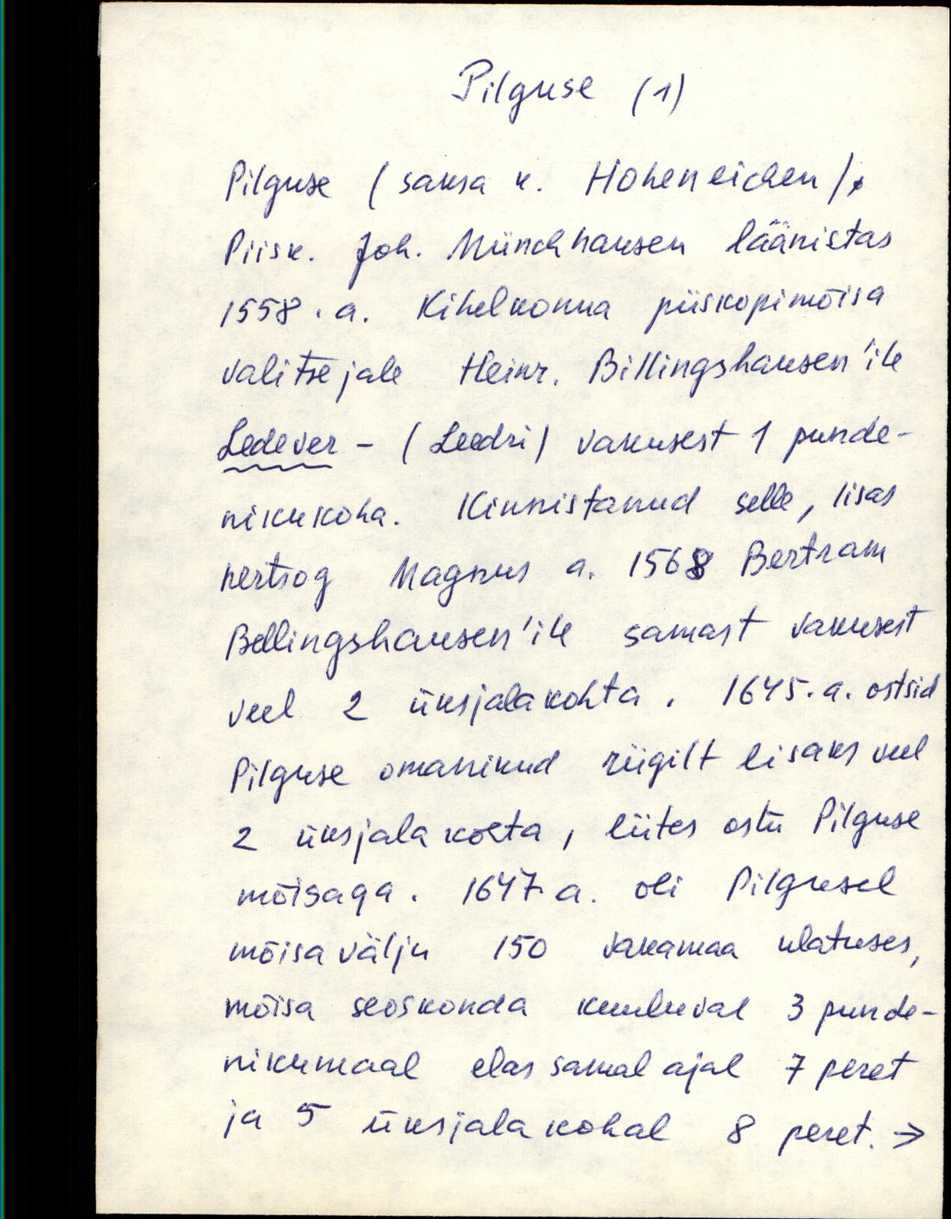 Pilguse (1)
Pilguse (saksa k. Hoheneichen).
Piisk. Joh. Münchhausen läänistas
1558. a. Kihelkonna piiskopimõisa
valitsejale Heinr. Billingshausen'ile
Ledever - (Leedri) vakusest 1 punde-
nikukoha. Kinnistanud selle, lisas
hertsog Magnus a. 1568 Bertram
Bellingshausen'ile samast vakusest
veel 2 üksjalakohta. 1645. a. ostsid
Pilguse omanikud riigilt lisaks veel
2 üksjalakohta, liites ostu Pilguse
mõisaga. 1647 a. oli Pilgusel
mõisavälju 150 vakamaa ulatuses,
mõisa seoskonda kuuluval 3 punde-
nikumaal elas samal ajal 7 peret
ja 5 üksjalakohal 8 peret. →